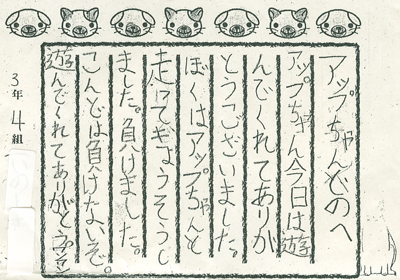 アップちゃんどのへ
アップちゃん今日は遊
んでくれてありが
とうございました。
ぼくはアップちゃんと
走ってぎょうそうし
ました。負けました。
こんどは負けないぞ。
遊んでくれてありがと
3年4組